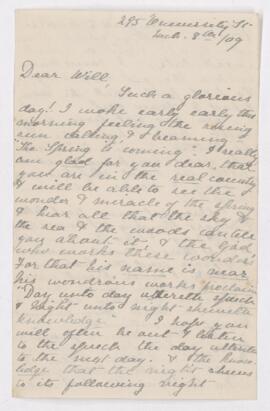 295 University St
8th/09
Dear Will
Such a glorious
day! I woke early early this
morning feeling the rising
sun calling, & beaming
"The Spring is coming". I really
am glad for you dear, that
you are in the real country
& will be able to see the
wonder & miracle of the spring
& hear all that the sky &
the sea & the woods can tell
you about it, & the God
who works these wonders
For that his name is near
his wondrous works proclaim
"Day unto day uttereth speech
& Night unto night sheweth
knowledge". I hope you
will often be out & listen
to the speech the day utters
to the next day. & the know-
ledge that the night shews
to its following night